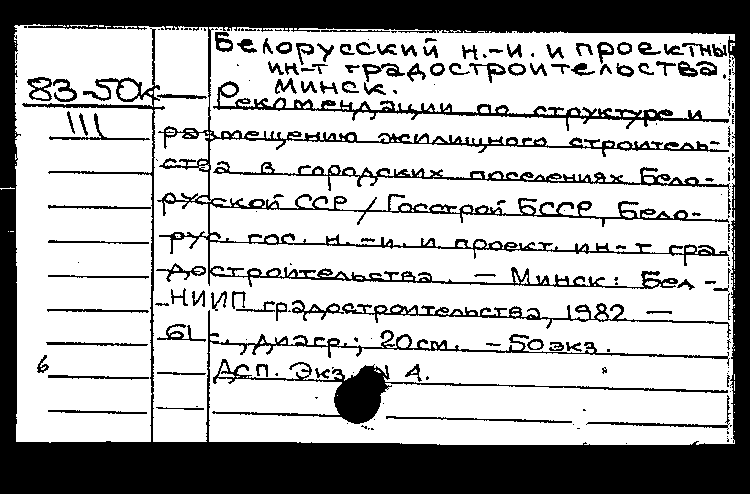 Белорусский н.-и. и проектный
ин-т градостроительства.
Минск.
83-50к
III
Рекомендации по структуре и
размещению жилищного строитель-
ства в городских поселениях Бело-
русской ССР / Госстрой БССР, Бело-
рус. гос. н.-и. и проект. ин-т гра-
достроительства. - Минск: Бел -
НИИП градостроительства, 1982 -
61 с., диагр.; 20 см. - 50 экз.
6
Дсп. Экз. N 4.